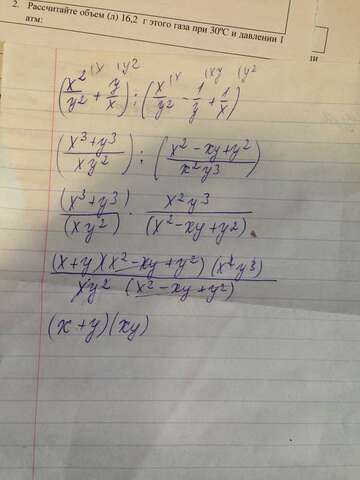 2. Рассчитайте объем (л) 16,2 г этого газа при 30°С и давлении 1
атм:
(x²/y² + y/x) : (x/y² - 1/y + 1/x)
((x³+y³)/(xy²)) : ((x²-xy+y²)/(x²y³))
(x³+y³)/(xy²) · x²y³/(x²-xy+y²)
(x+y)(x²-xy+y²)(x²y³)/(xy²(x²-xy+y²))
(x+y)(xy)